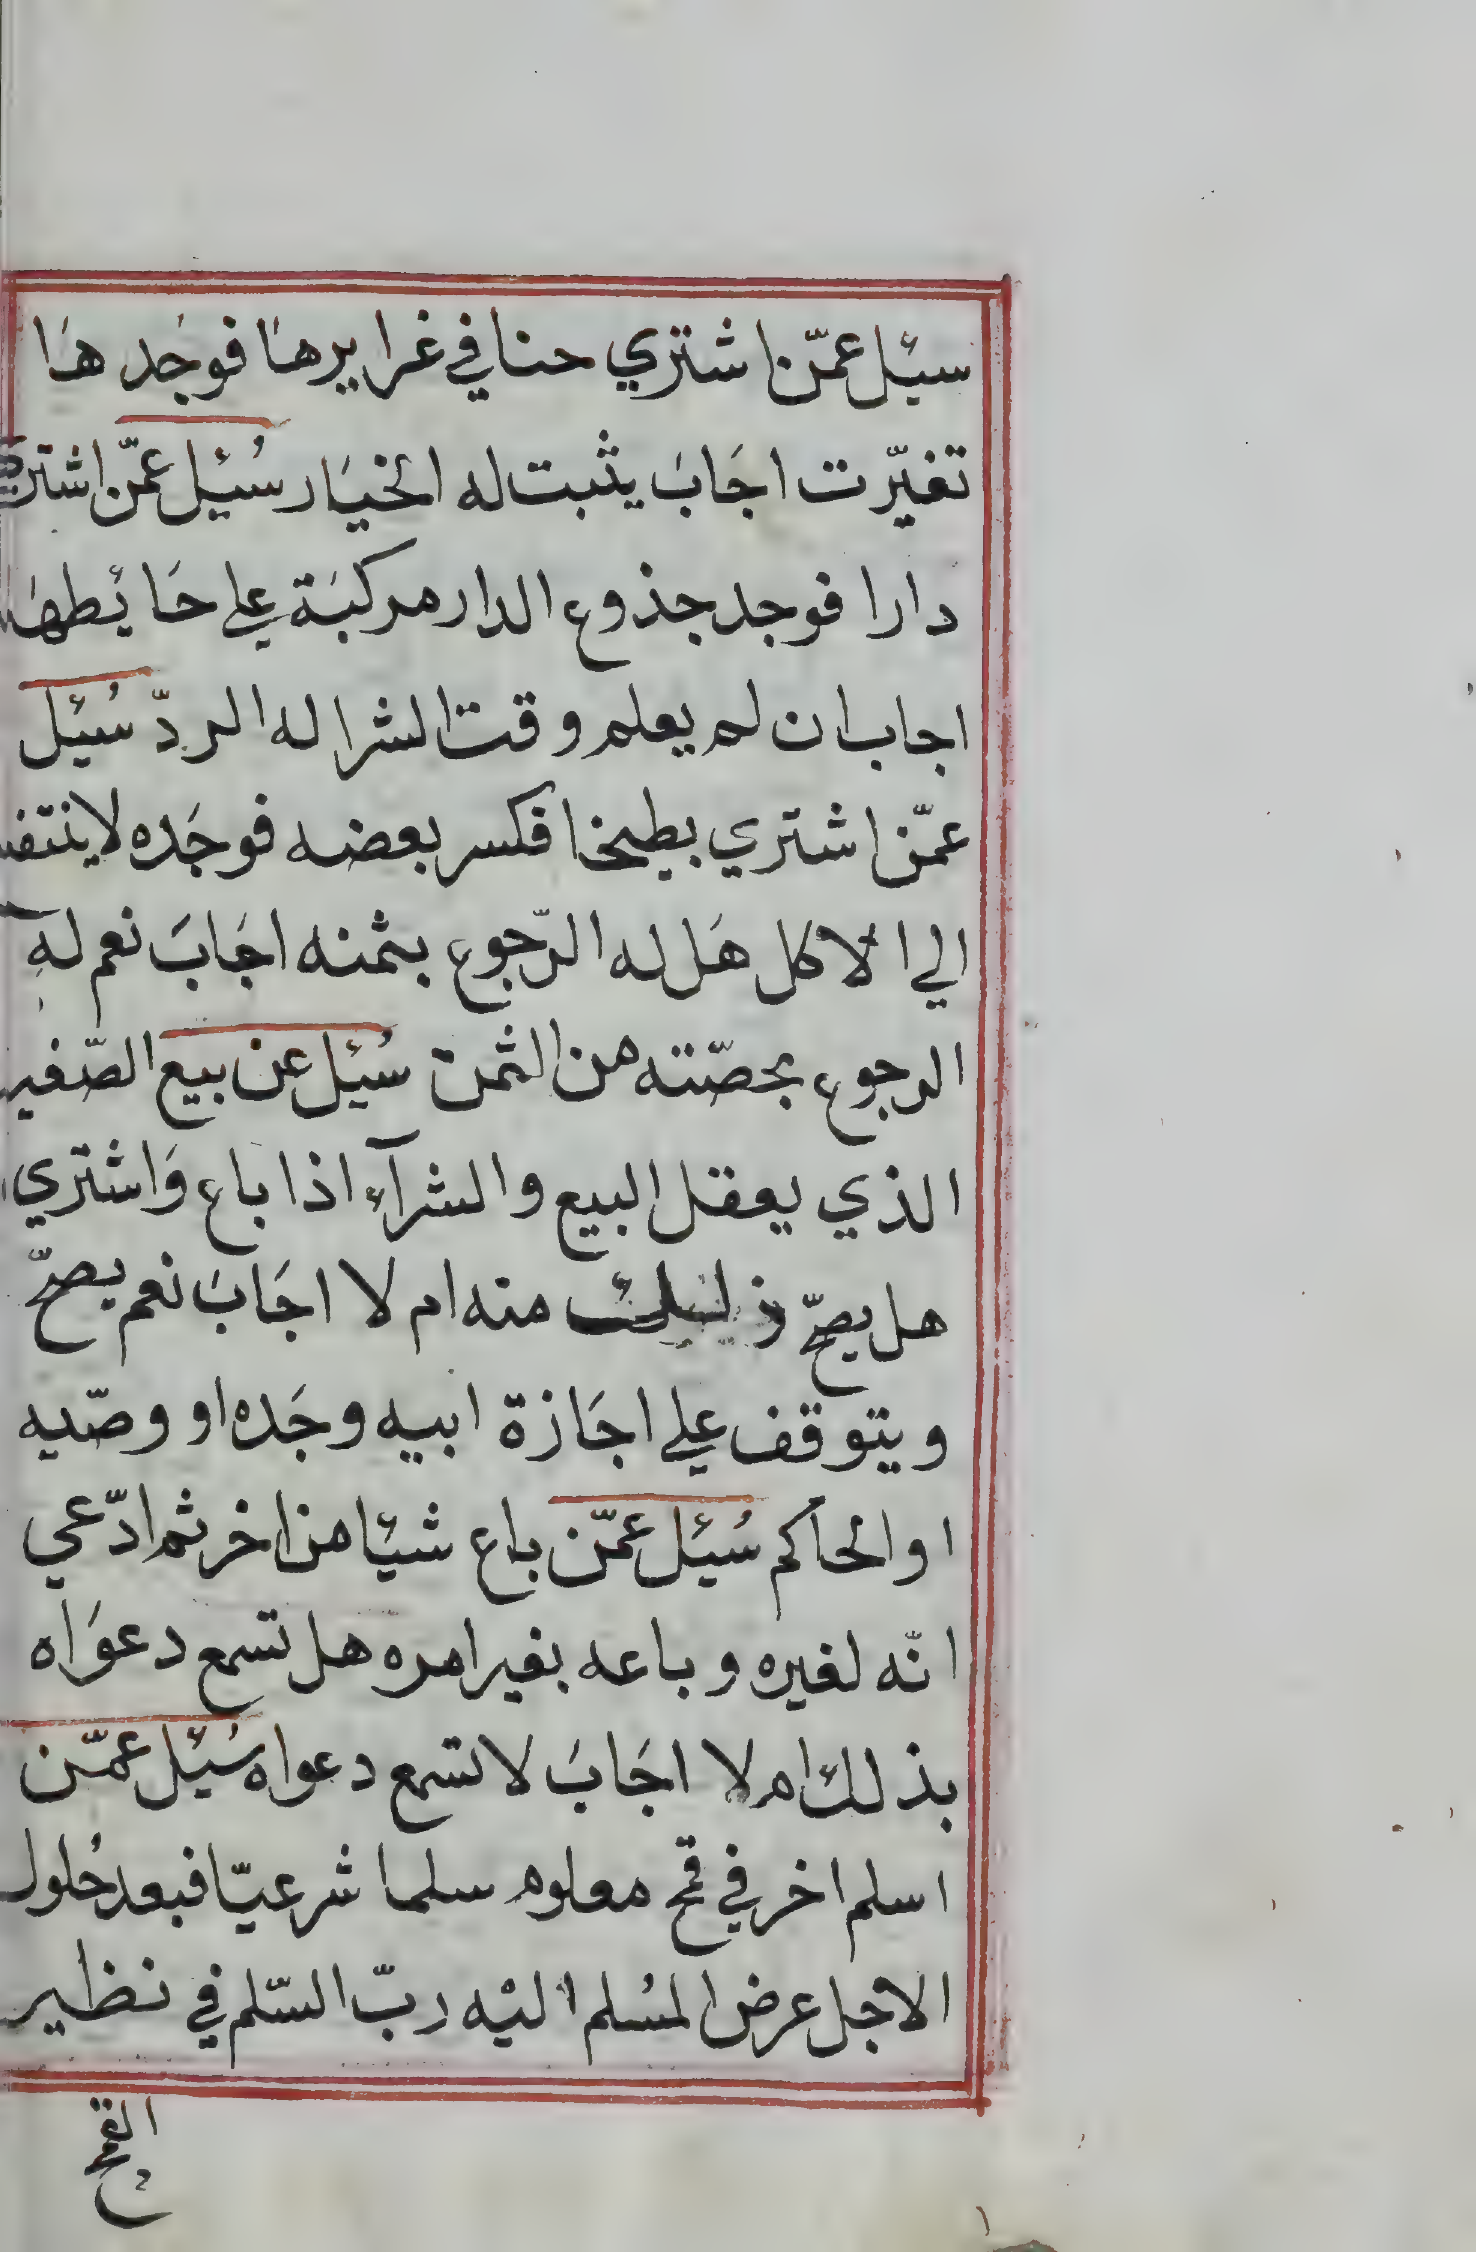 سئل عمّن اشتري حنا في غرايرها فوجدها
تغيّرت اجَابَ يثبت له الخيَار سُئل عمّن اشتري
دارا فوجد جذوع الدار مركبَة علي حَائطها
اجاب ان لم يعلم وقت الشرا له الردّ سُئل
عمّن اشتري بطيخا فكسر بعضه فوجَده لا ينتفع
الي الاكل هَل له الرّجوع بثمنه اجَابَ نعم له
الرجوع بحصّته من الثمن سُئل عن بيع الصّغير
الذي يعقل البيع والشرآء اذا باع وَاشتري
هل يصحّ ذلك منه ام لا اجَابَ نعم يصحّ
ويتوقف علي اجَازة ابيه وجَده او وصّيه
او الحاكم سُئل عمّن باع شئا من اخر ثم ادّعي
انّه لغيره وباعه بغير امره هل تسمع دعوَاه
بذلك ام لا اجَابَ لا تسمع دعواه سُئل عمّن
اسلم اخر في قمح معلوم سلما شرعيّا فبعد حُلول
الاجل عرض المسُلم اليْه ربّ السّلم في نظير
القمح